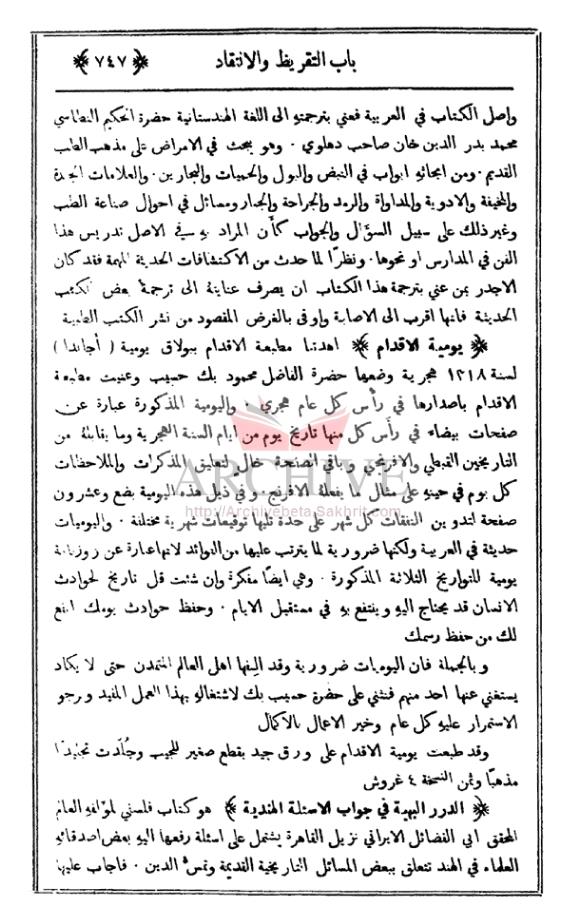 باب التقريظ والانتقاد ﴿ ٧٤٧ ﴾
واصل الكتاب في العربية فعني بترجمتهِ الى اللغة الهندستانية حضرة الحكيم النطاسي
محمد بدر الدين خان صاحب دهلوي · وهو يبحث في الامراض على مذهب الطب
القديم · ومن ابحاثهِ ابواب في النبض والبول والحميات والبحارين · والعلامات الجيدة
والمخيفة والادوية والمداواة والرمد والجراحة والجبار ومسائل في احوال صناعة الطب
وغير ذلك على سبيل السؤال والجواب كأن المراد بهِ في الاصل تدريس هذا
الفن في المدارس او نحوها · ونظرًا لما حدث من الاكتشافات الحديثة المهمة فقد كان
الاجدر بمن عني بترجمة هذا الكتاب ان يصرف عنايتهُ الى ترجمة بعض الكتب
الحديثة فانها اقرب الى الاصابة واوفى بالغرض المقصود من نشر الكتب الطبية
﴿ يومية الاقدام ﴾ اهدتنا مطبعة الاقدام ببولاق يومية ( أجاندا )
لسنة ١٣١٨ هجرية وضعها حضرة الفاضل محمود بك حسيب وعنيت مطبعة
الاقدام باصدارها في رأس كل عام هجري · واليومية المذكورة عبارة عن
صفحات بيضاء في رأس كل منها تاريخ يوم من ايام السنة الهجرية وما يقابلهُ من
التاريخين القبطي والافرنجي وباقي الصفحة خال لتعليق المذكرات والملاحظات
كل يوم في حينهِ على مثال ما يفعلهُ الافرنج · وفي ذيل هذه اليومية بضع وعشرون
صفحة لتدوين النفقات كل شهر على حدة تليها توقيعات شهرية مختلفة · واليوميات
حديثة في العربية ولكنها ضرورية لما يترتب عليها من الفوائد لانها عبارة عن روزنامة
يومية للتواريخ الثلاثة المذكورة · وهي ايضًا مفكرة وإن شئت قل تاريخ لحوادث
الانسان قد يحتاج اليهِ وينتفع بهِ في مستقبل الايام · وحفظ حوادث يومك انفع
لك من حفظ رسمك
وبالجملة فان اليوميات ضرورية وقد الفها اهل العالم المتمدن حتى لا يكاد
يستغني عنها احد منهم فنثني على حضرة حسيب بك لاشتغالهِ بهذا العمل المفيد ونرجو
الاستمرار عليهِ كل عام وخير الاعمال بالاكمال
وقد طبعت يومية الاقدام على ورق جيد بقطع صغير للجيب وجُلّدت تجليدًا
مذهبًا وثمن النسخة ٤ غروش
﴿ الدرر البهية في جواب الاسئلة الهندية ﴾ هو كتاب فلسفي لمؤلفهِ العالم
المحقق ابي الفضائل الايراني نزيل القاهرة يشتمل على اسئلة رفعها اليهِ بعض اصدقائهِ
العلماء في الهند تتعلق ببعض المسائل التاريخية القديمة وتمسّ الدين · فاجاب عليها
ARCHIVE
http://Archivebeta.Sakhrit.com